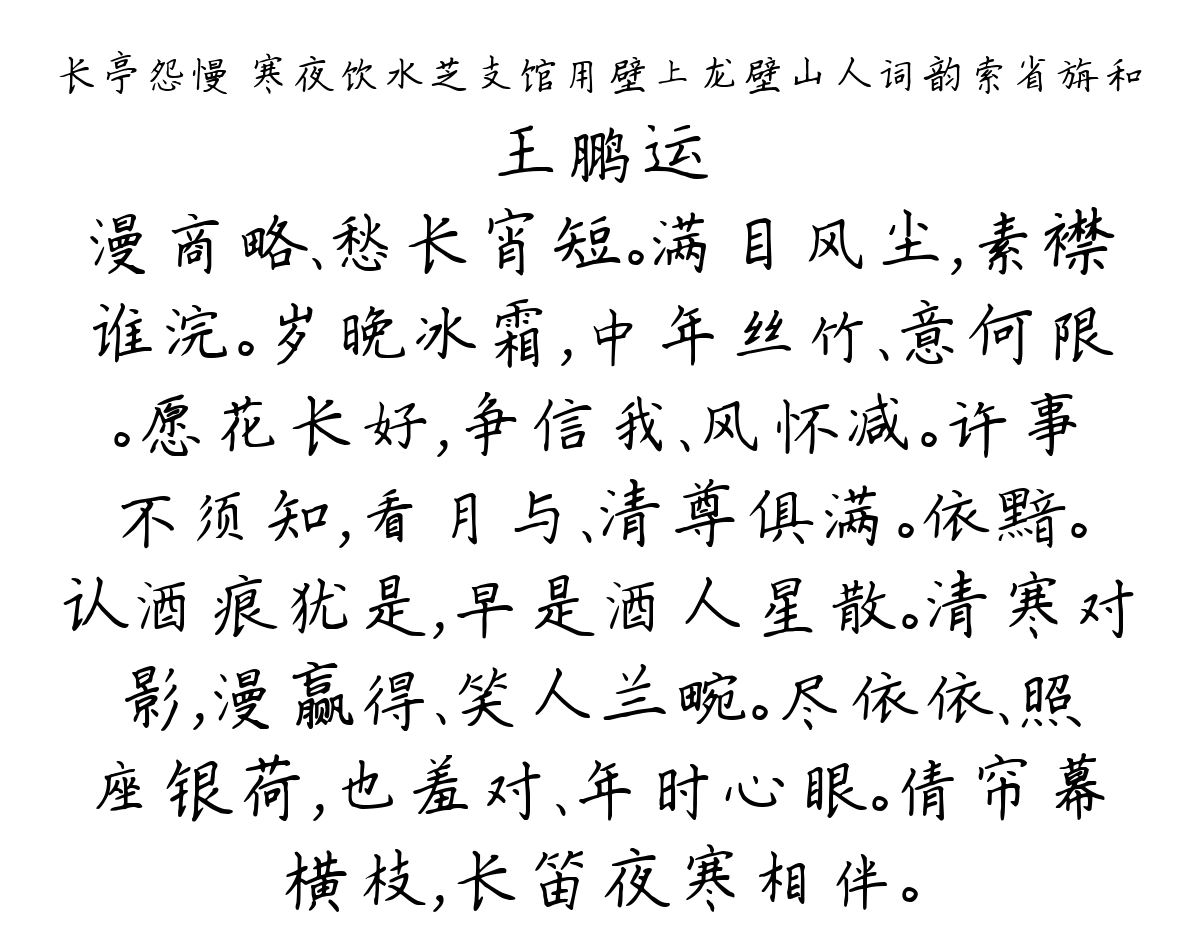 长亭怨慢 寒夜饮水芝支馆用壁上龙壁山人词韵索省旃和
王鹏运
漫商略、愁长宵短。满目风尘,素襟
谁浣。岁晚冰霜,中年丝竹、意何限
。愿花长好,争信我、风怀减。许事
不须知,看月与、清尊俱满。依黯。
认酒痕犹是,早是酒人星散。清寒对
影,漫赢得、笑人兰畹。尽依依、照
座银荷,也羞对、年时心眼。倩帘幕
横枝,长笛夜寒相伴。